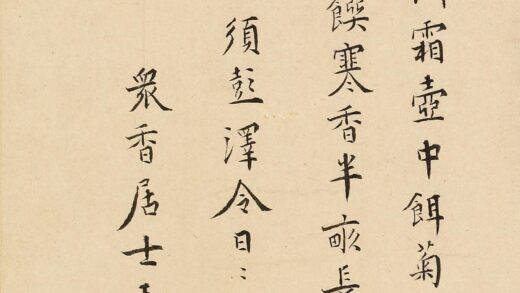 霜壺中餌菊
饌寒香半畝長
須彭澤令日〻
衆香居士